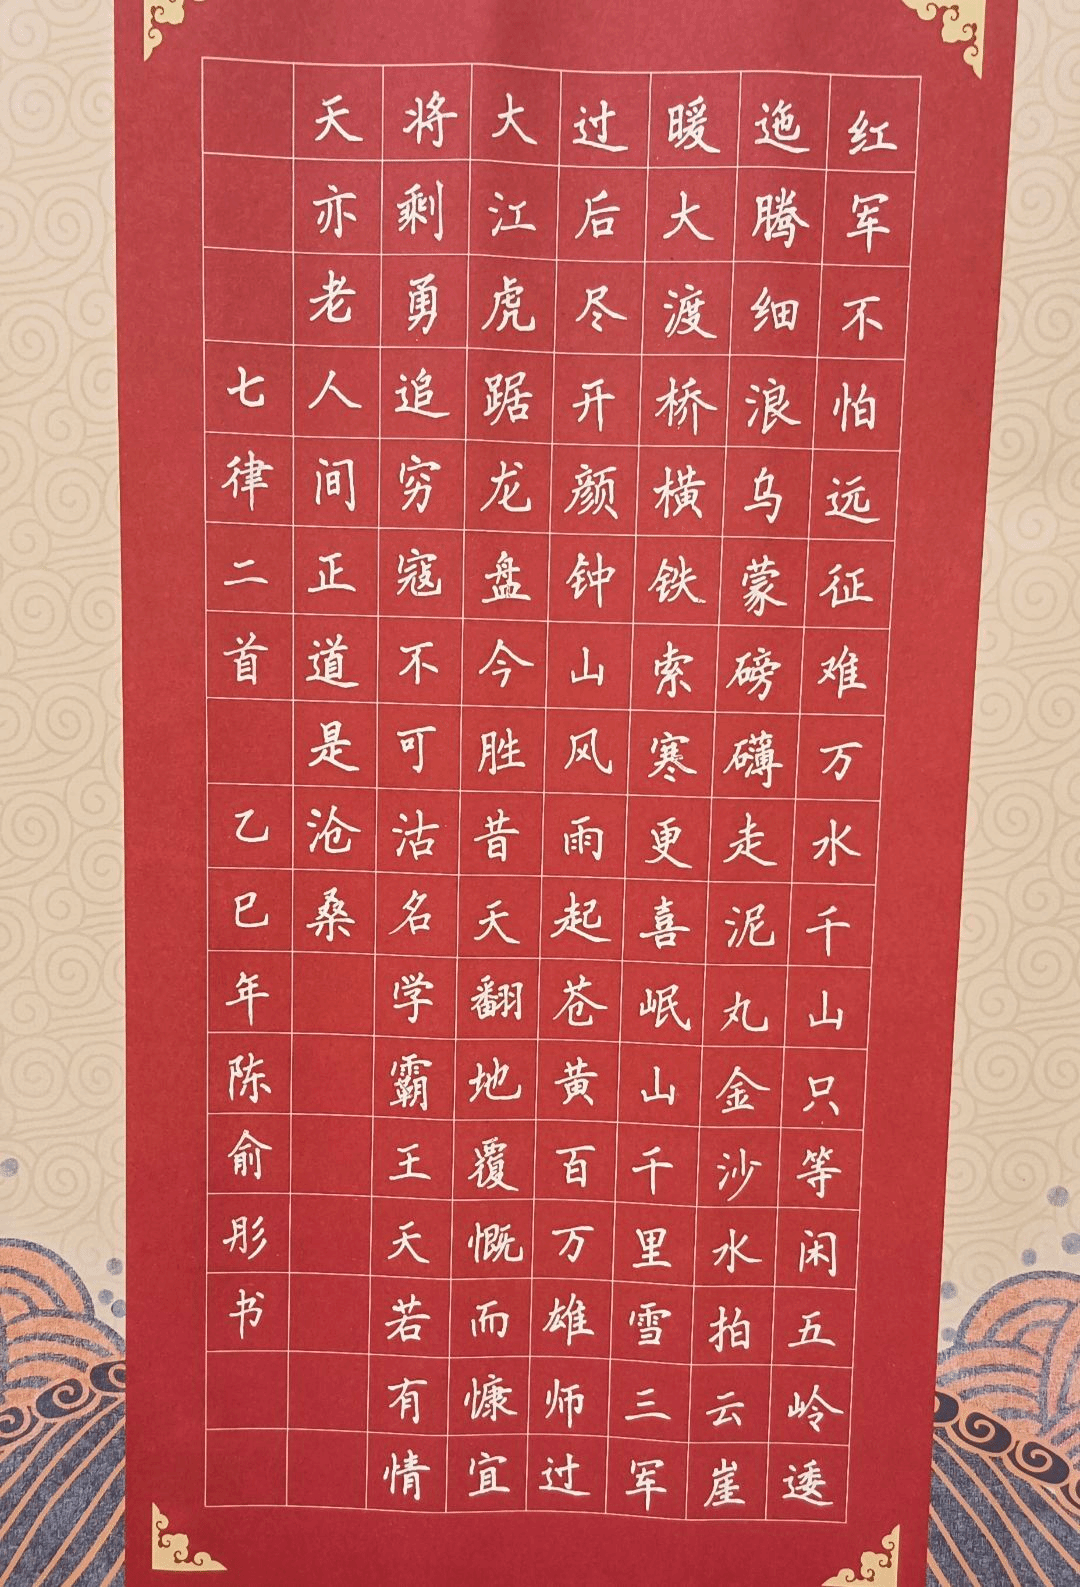 红军不怕远征难万水千山只等闲五岭逶
迤腾细浪乌蒙磅礴走泥丸金沙水拍云崖
暖大渡桥横铁索寒更喜岷山千里雪三军
过后尽开颜钟山风雨起苍黄百万雄师过
大江虎踞龙盘今胜昔天翻地覆慨而慷宜
将剩勇追穷寇不可沽名学霸王天若有情
天亦老人间正道是沧桑
七律二首 乙巳年陈俞彤书